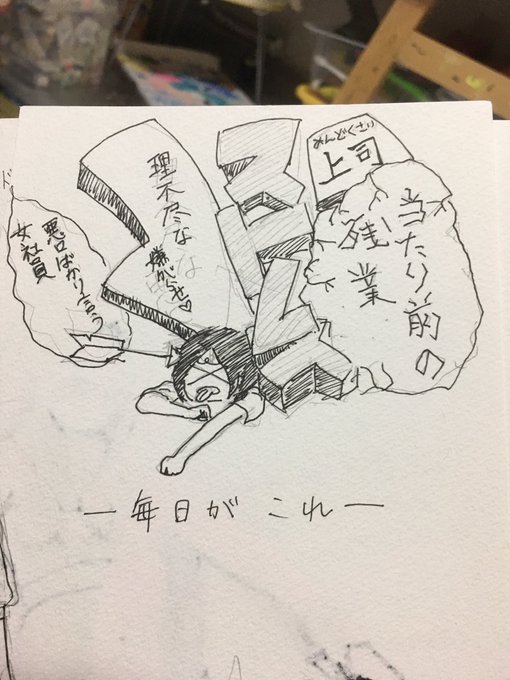 当たり前の
残業
めんどくさい
上司
理不尽な
嫌がらせ♡
悪口ばかり言う
女社員
―毎日がこれ―